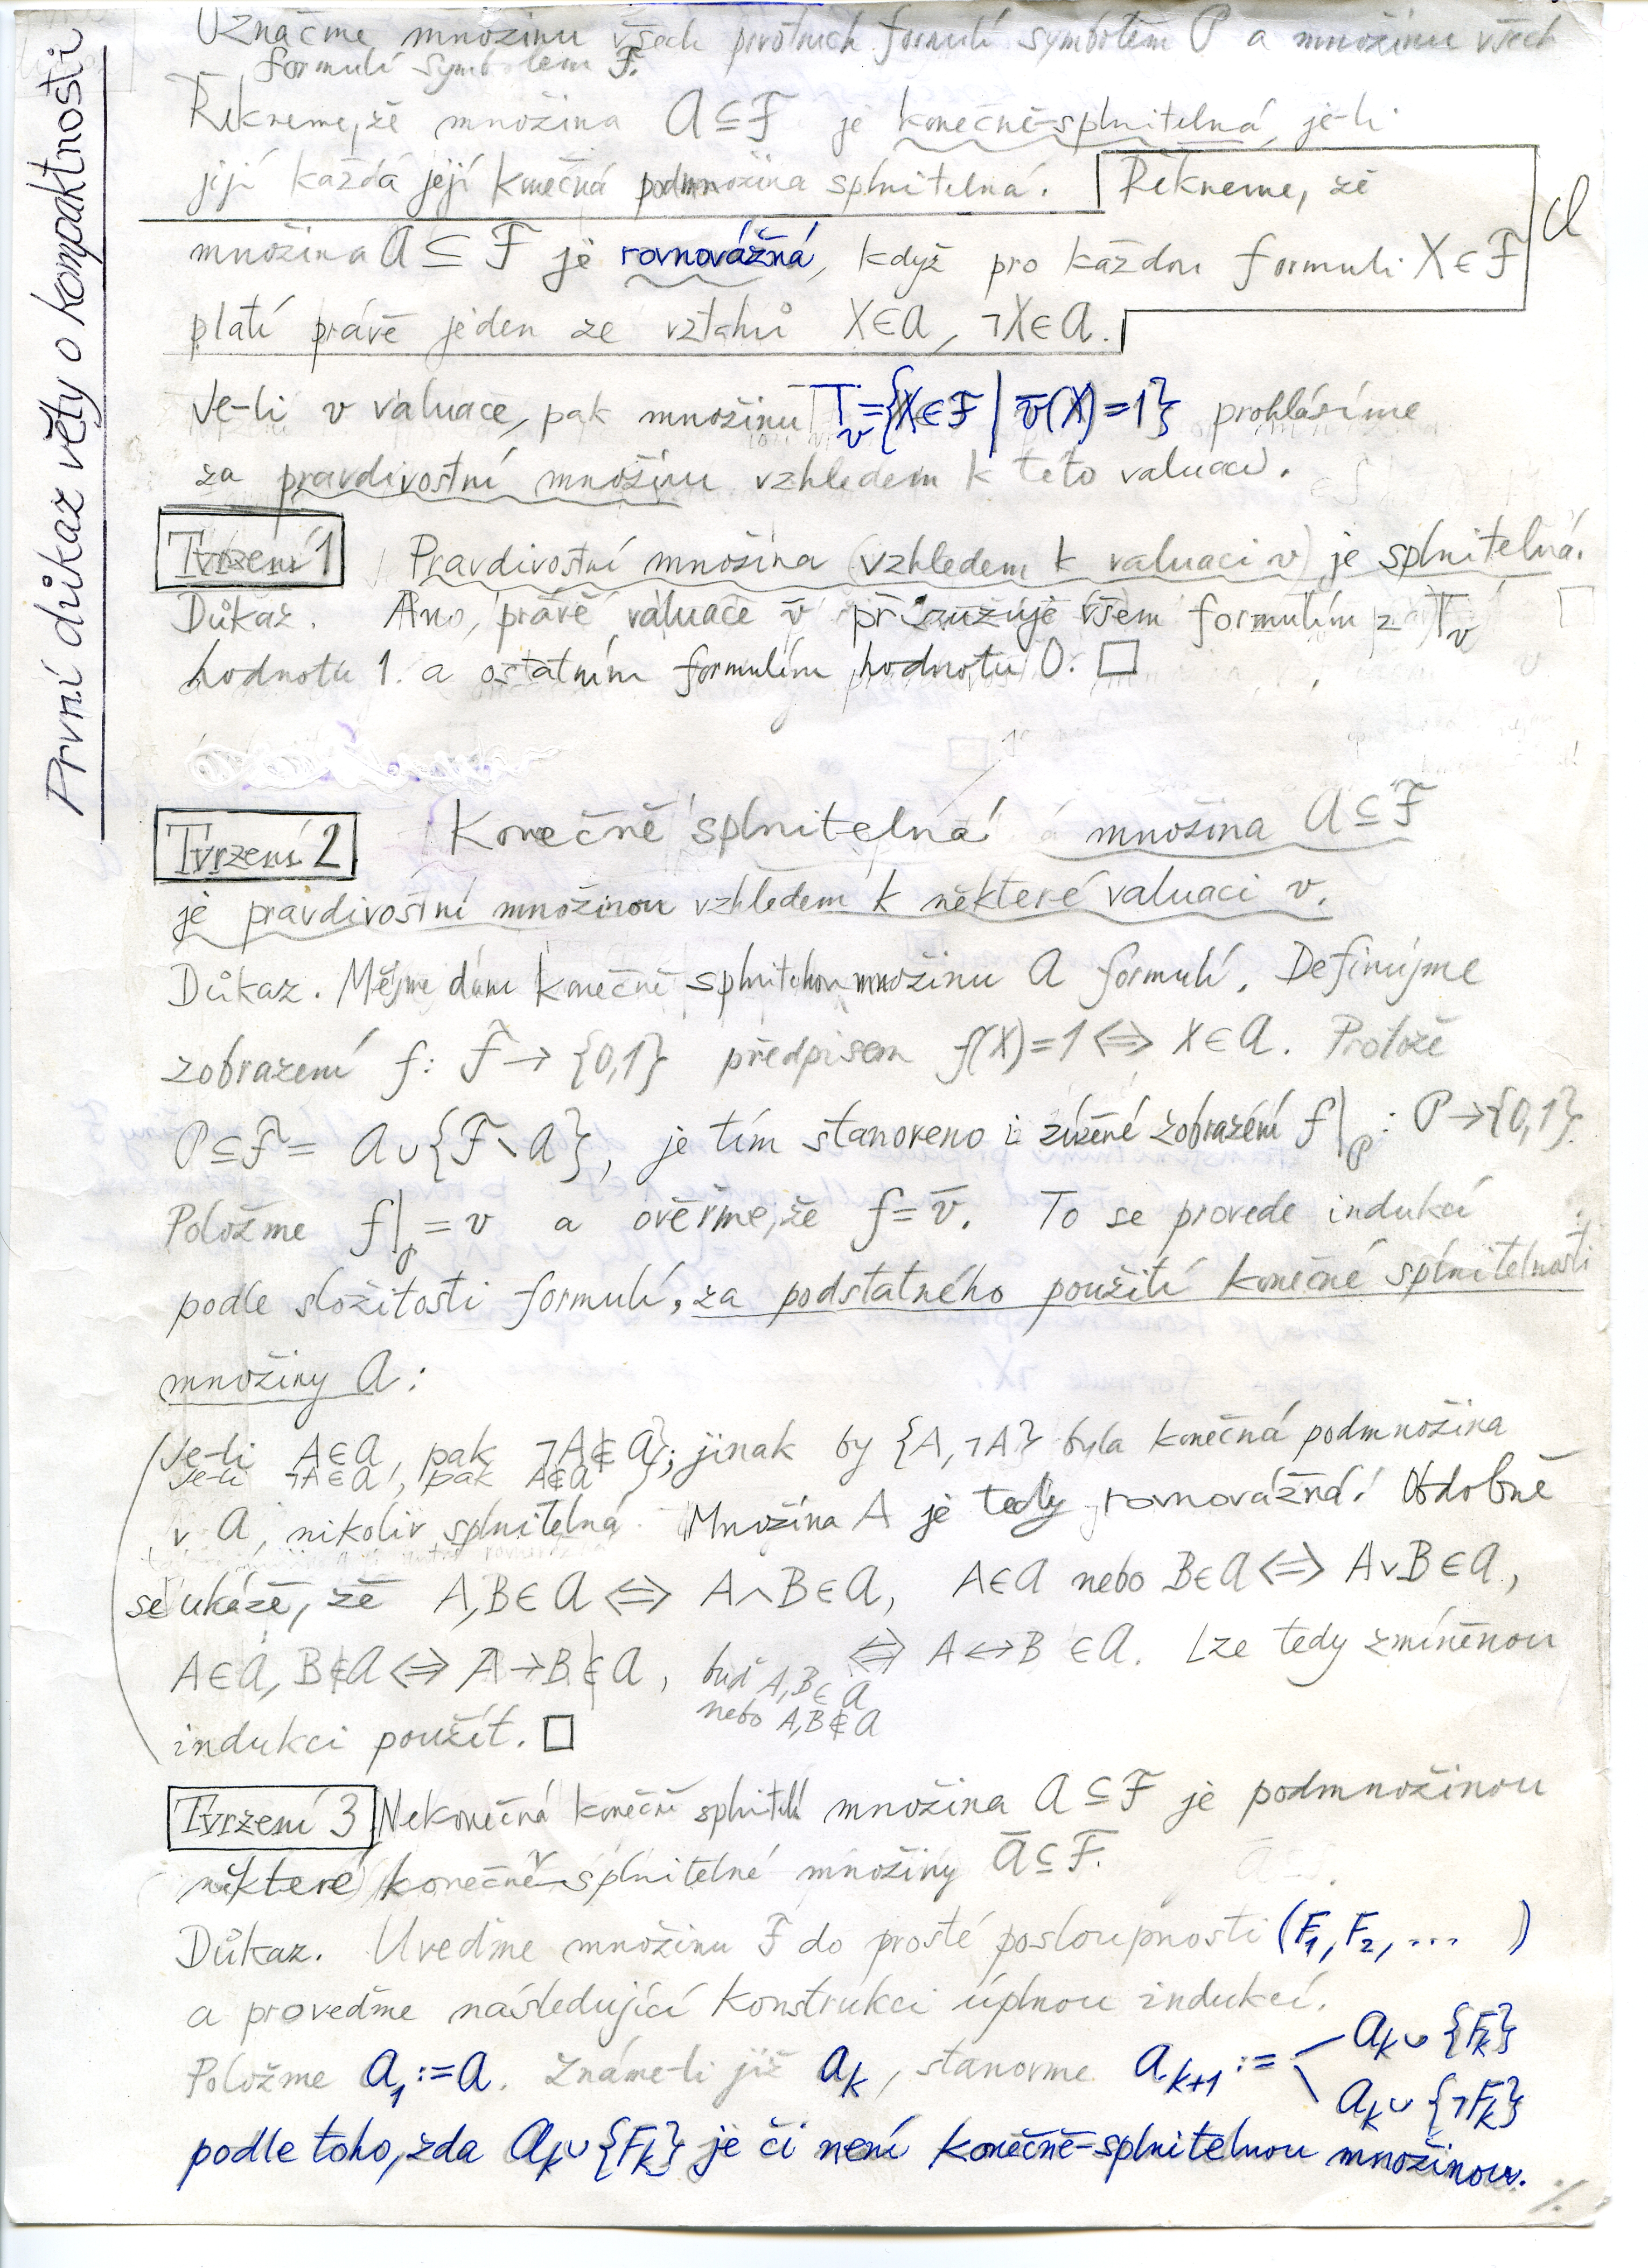 První důkaz věty o kompaktnosti
Označme množinu všech prvotních formulí symbolem P a množinu všech
formulí symbolem F.
Řekneme, že množina A ⊆ F je konečně-splnitelná, je-li
její každá její konečná podmnožina splnitelná. Řekneme, že
množina A ⊆ F je rovnovážná, když pro každou formuli X ∈ F
platí právě jeden ze vztahů X ∈ A, ¬X ∈ A.
Je-li v valuace, pak množinu T_v = {X ∈ F | v̄(X) = 1} prohlásíme
za pravdivostní množinu vzhledem k této valuaci.
Tvrzení 1 Pravdivostní množina (vzhledem k valuaci v) je splnitelná.
Důkaz. Ano, právě valuace v̄ přisuzuje všem formulím z T_v
hodnotu 1. a ostatním formulím hodnotu 0. □
Tvrzení 2 Konečně splnitelná množina A ⊆ F
je pravdivostní množinou vzhledem k některé valuaci v.
Důkaz. Mějme dánu konečně splnitelnou množinu A formulí. Definujme
zobrazení f: F → {0,1} předpisem f(X)=1 ⇔ X ∈ A. Protože
P ⊆ F = A ∪ {F ∖ A}, je tím stanoveno i zúžené zobrazení f|_P : P → {0,1}.
Položme f|_P = v a ověřme, že f = v̄. To se provede indukcí
podle složitosti formulí, za podstatného použití konečné splnitelnosti
množiny A:
Je-li A ∈ A, pak ¬A ∉ A; jinak by {A, ¬A} byla konečná podmnožina
Je-li ¬A ∈ A, pak A ∉ A
v A, nikoliv splnitelná. Množina A je tedy rovnovážná! Obdobně
se ukáže, že A,B ∈ A ⇔ A∧B ∈ A, A ∈ A nebo B ∈ A ⇔ A∨B ∈ A,
A ∈ A, B ∉ A ⇔ A→B ∉ A, buď A,B ∈ A ⇔ A↔B ∈ A. Lze tedy zmíněnou
nebo A,B ∉ A
indukci použít. □
Tvrzení 3 Nekonečná konečně splnitelná množina A ⊆ F je podmnožinou
některé konečně-splnitelné množiny Ā ⊆ F.
Důkaz. Uveďme množinu F do prosté posloupnosti (F₁, F₂, ... )
a proveďme následující konstrukci úplnou indukcí.
Položme A₁ := A. Známe-li již A_k, stanovme A_{k+1} := A_k ∪ {F_k}
A_k ∪ {¬F_k}
podle toho, zda A_k ∪ {F_k} je či není konečně-splnitelnou množinou.
./.